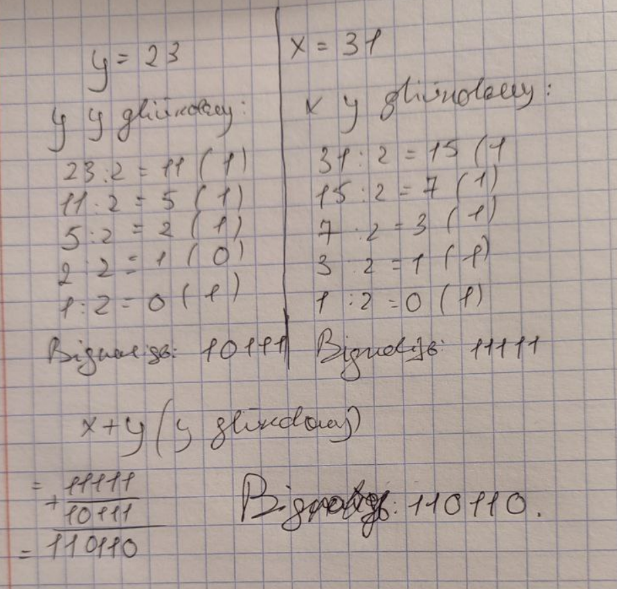 y = 23
y у двійковому:
23:2 = 11 (1)
11:2 = 5 (1)
5:2 = 2 (1)
2:2 = 1 (0)
1:2 = 0 (1)
Відповідь: 10111
x = 31
x у двійковому:
31:2 = 15 (1
15:2 = 7 (1)
7:2 = 3 (1)
3:2 = 1 (1)
1:2 = 0 (1)
Відповідь: 11111
x+y (у двійковому)
= 11111
+ 10111
= 110110
Відповідь: 110110.